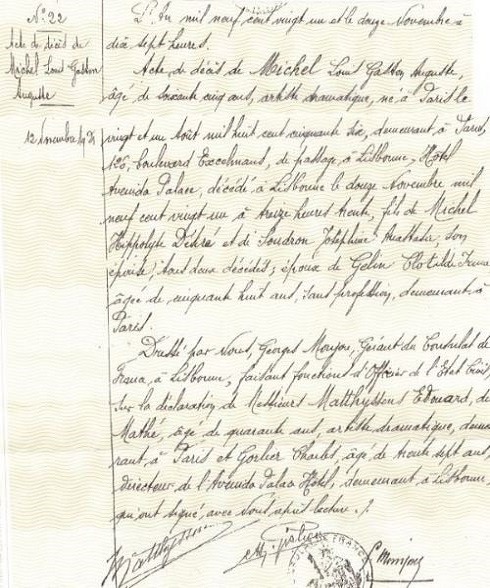 N° 22
Acte de décès de
Michel Louis Gaston
Auguste
12 Novembre 1921
L'An mil neuf cent vingt un et le douze Novembre à
dix sept heures.
Acte de décès de Michel Louis Gaston Auguste,
âgé de soixante cinq ans, artiste dramatique, né à Paris le
vingt et un Août mil huit cent cinquante six, demeurant à Paris,
126, boulevard Excelmans, de passage à Lisbonne, Hôtel
Avenida Palace, décédé à Lisbonne le douze Novembre mil
neuf cent vingt un à treize heures trente, fils de Michel
Hippolyte Désiré et de Soudron Joséphine Anastasia, son
épouse, tous deux décédés; époux de Gelin Clotilde
âgée de cinquante huit ans, sans profession, demeurant à
Paris.
Dressé par Nous, Georges Monjou, Gérant du Consulat de
France à Lisbonne, faisant fonctions d'Officier de l'Etat Civil,
sur la déclaration de Messieurs Matthyssens Edouard, de
Mathé, âgé de quarante ans, artiste dramatique, demeu
rant à Paris et Gorlier Charles, âgé de trente sept ans,
directeur de l'Avenida Palace Hôtel, demeurant à Lisbonne,
qui ont signé avec Nous après lecture ./.
Matthyssens
G Monjou